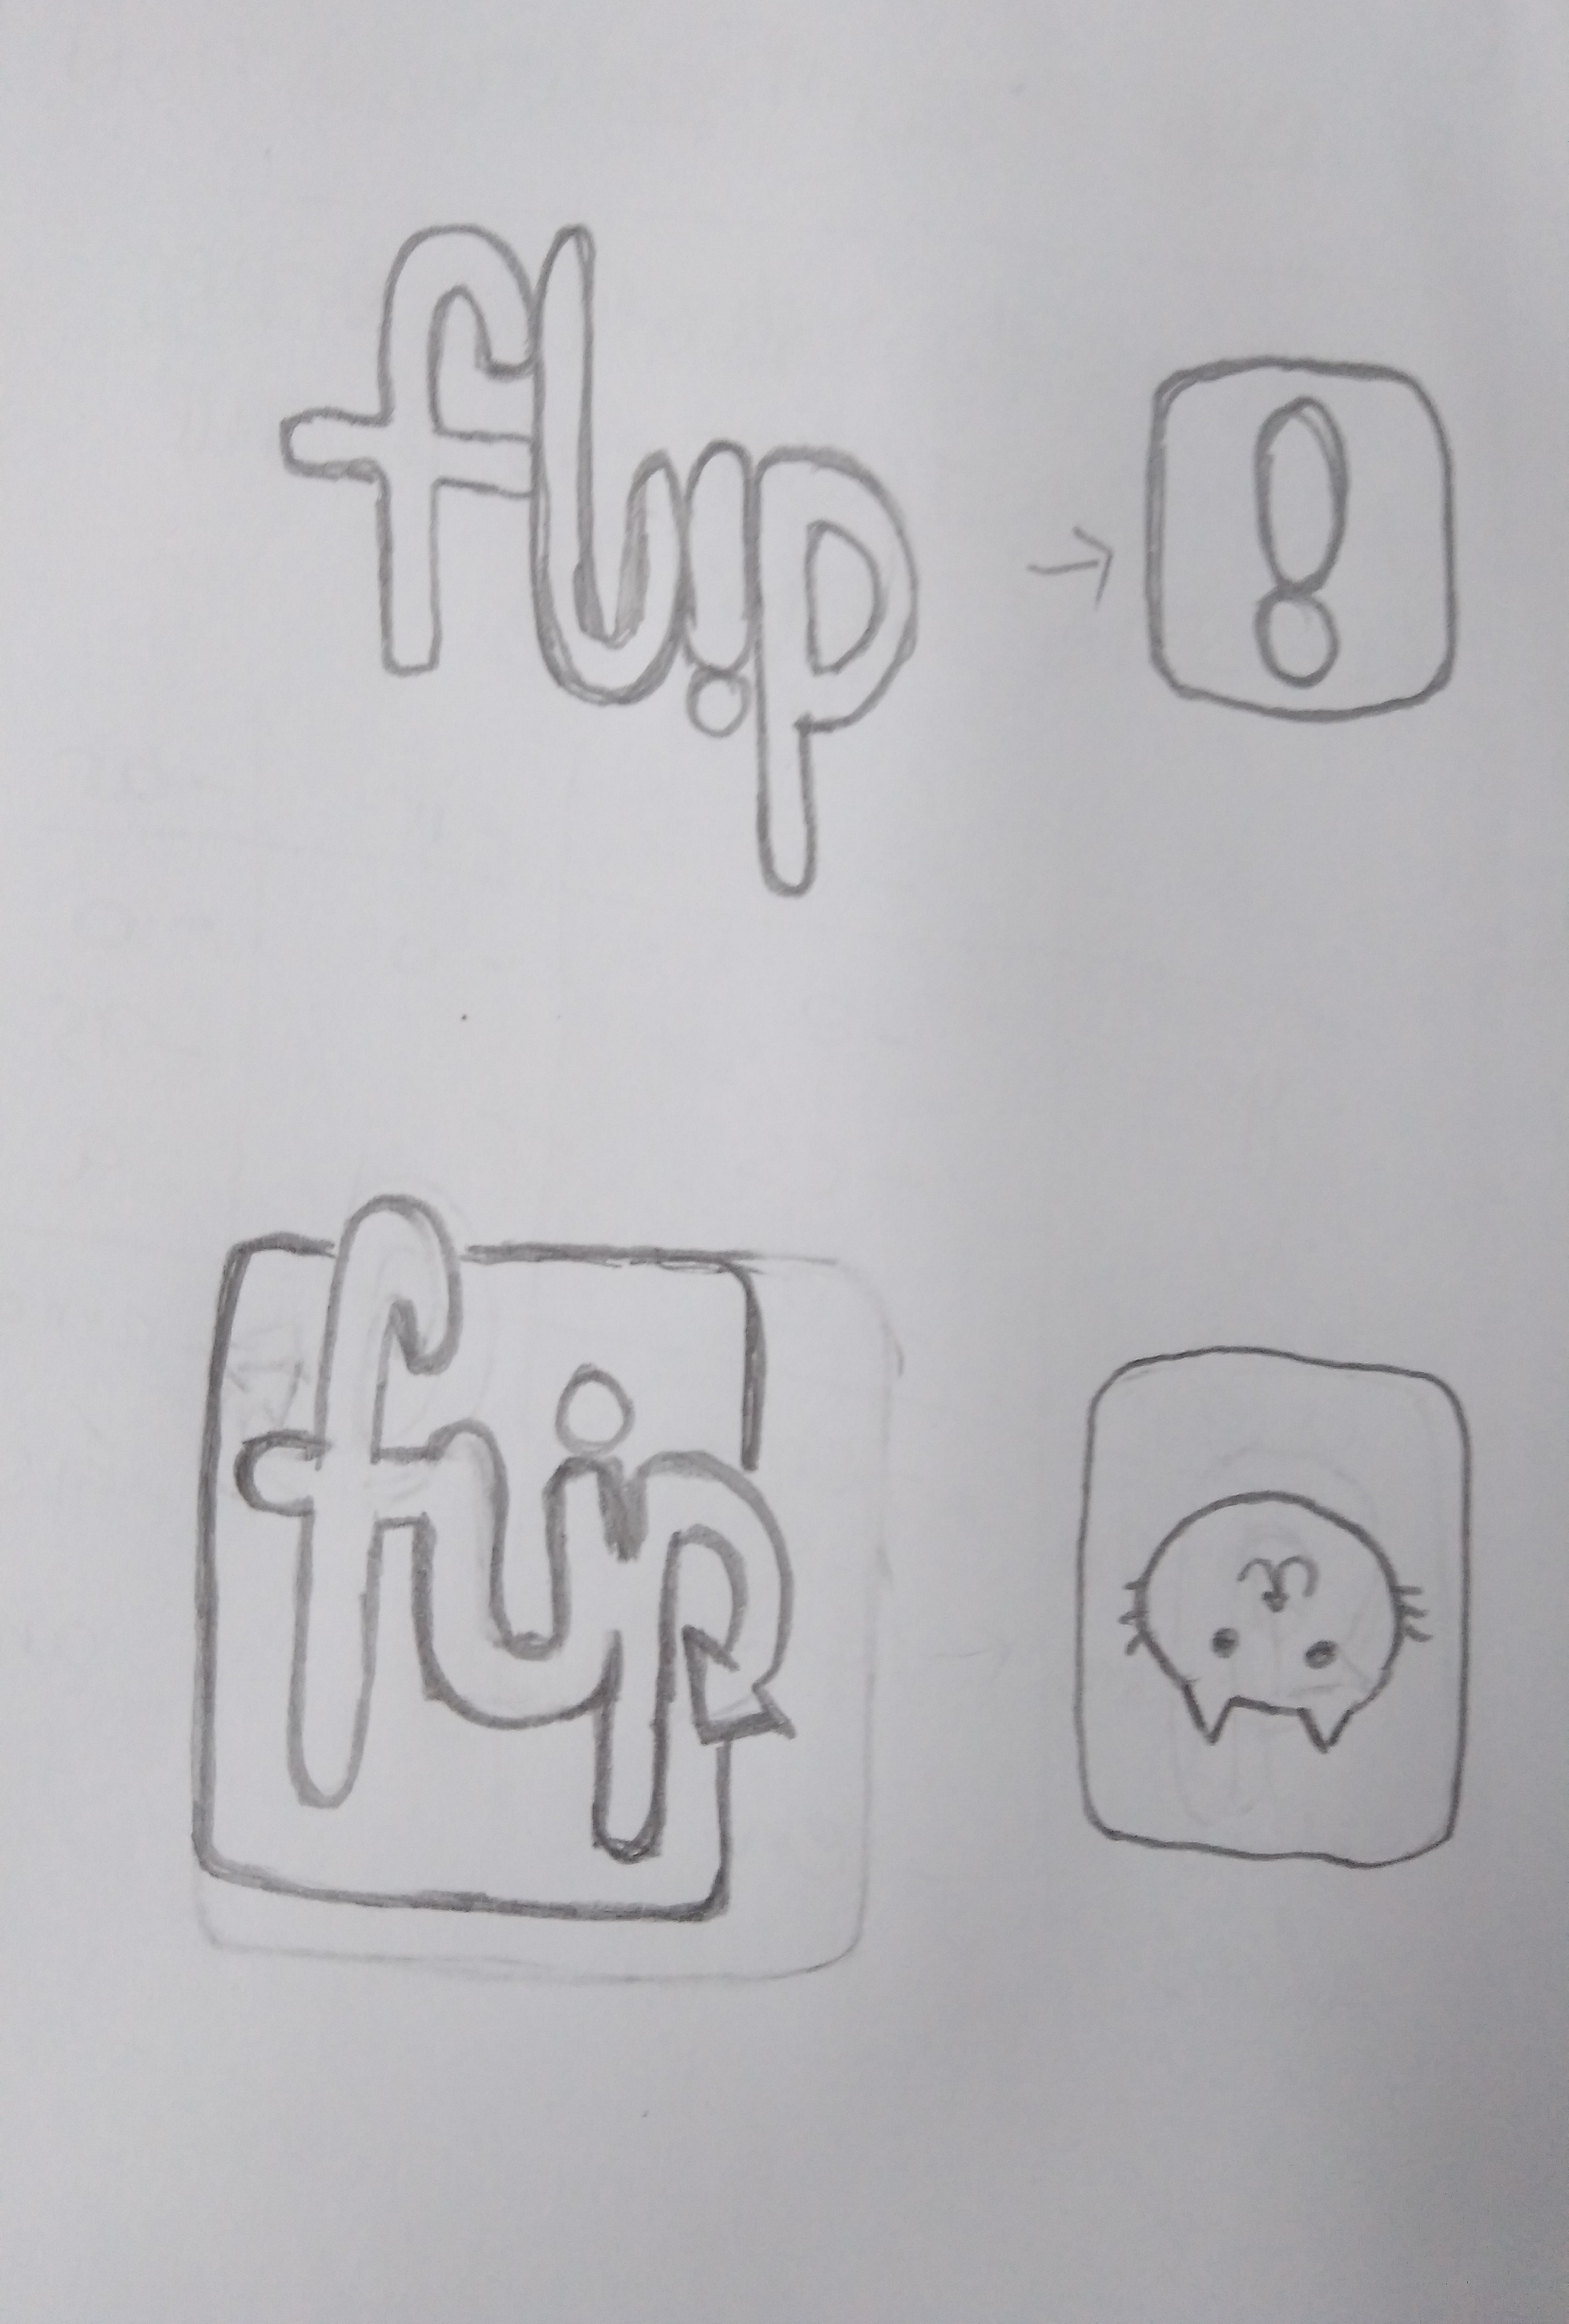 flip
!
flip